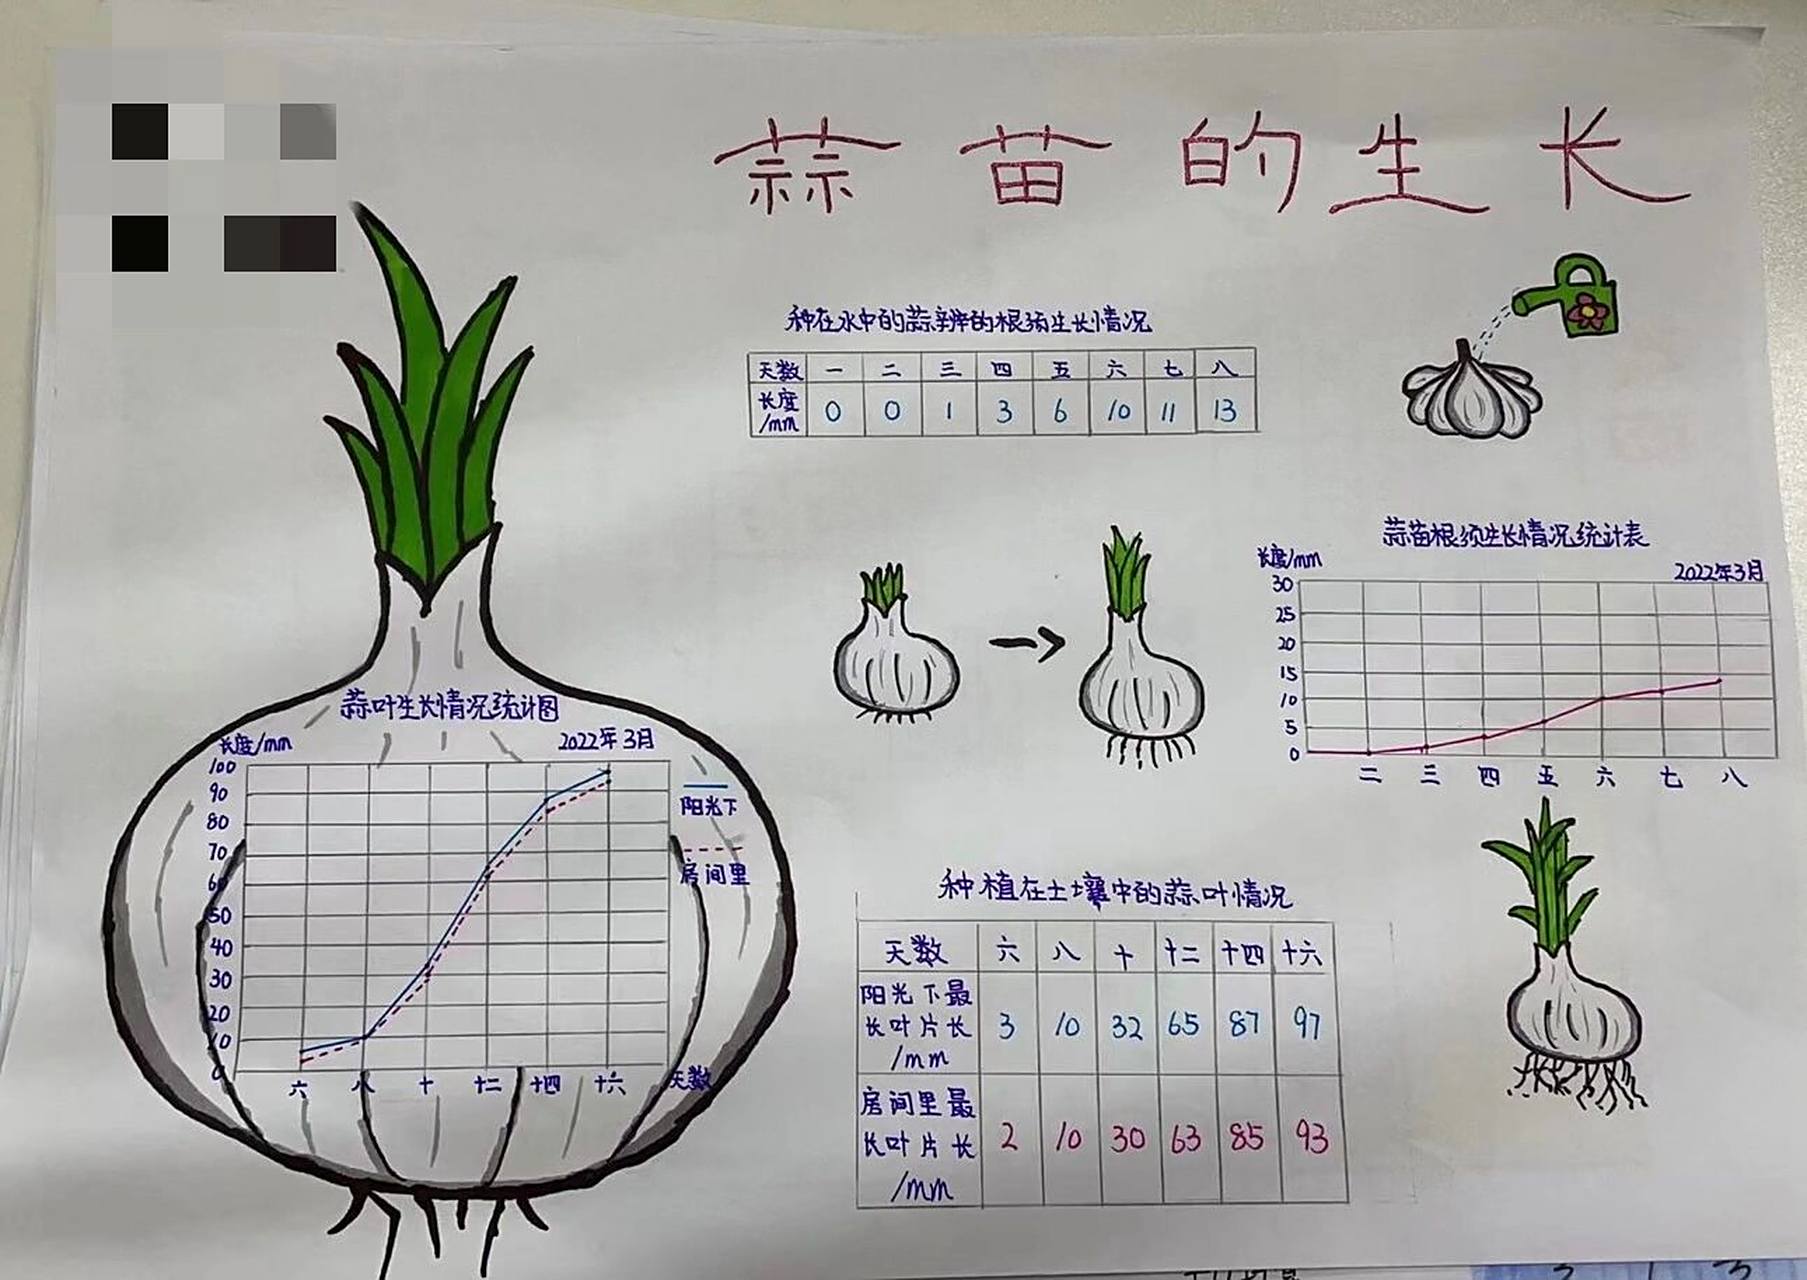 蒜苗的生长
种在水中的蒜辨的根须生长情况
天数 一 二 三 四 五 六 七 八
长度/mm 0 0 1 3 6 10 11 13
蒜苗根须生长情况统计表
长度/mm
2022年3月
30
25
20
15
10
5
0
二 三 四 五 六 七 八
蒜叶生长情况统计图
长度/mm
2022年3月
100
90
80
70
60
50
40
30
20
10
0
六 八 十 十二 十四 十六 天数
阳光下
房间里
种植在土壤中的蒜叶情况
天数 六 八 十 十二 十四 十六
阳光下最
长叶片长 3 10 32 65 87 97
/mm
房间里最
长叶片长 2 10 30 63 85 93
/mm